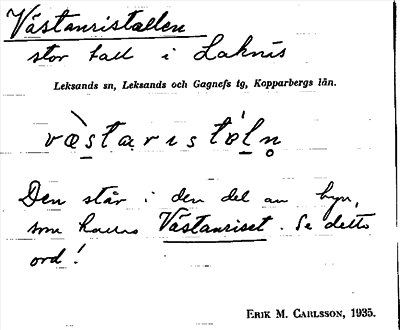 Västanristallen
stor tall i Laknäs
Leksands sn, Leksands och Gagnefs tg, Kopparbergs län.
væ̀staristáln̥
Den står i den del av byn,
som kallas Västanriset. Se detta
ord!
ERIK M. CARLSSON, 1935.